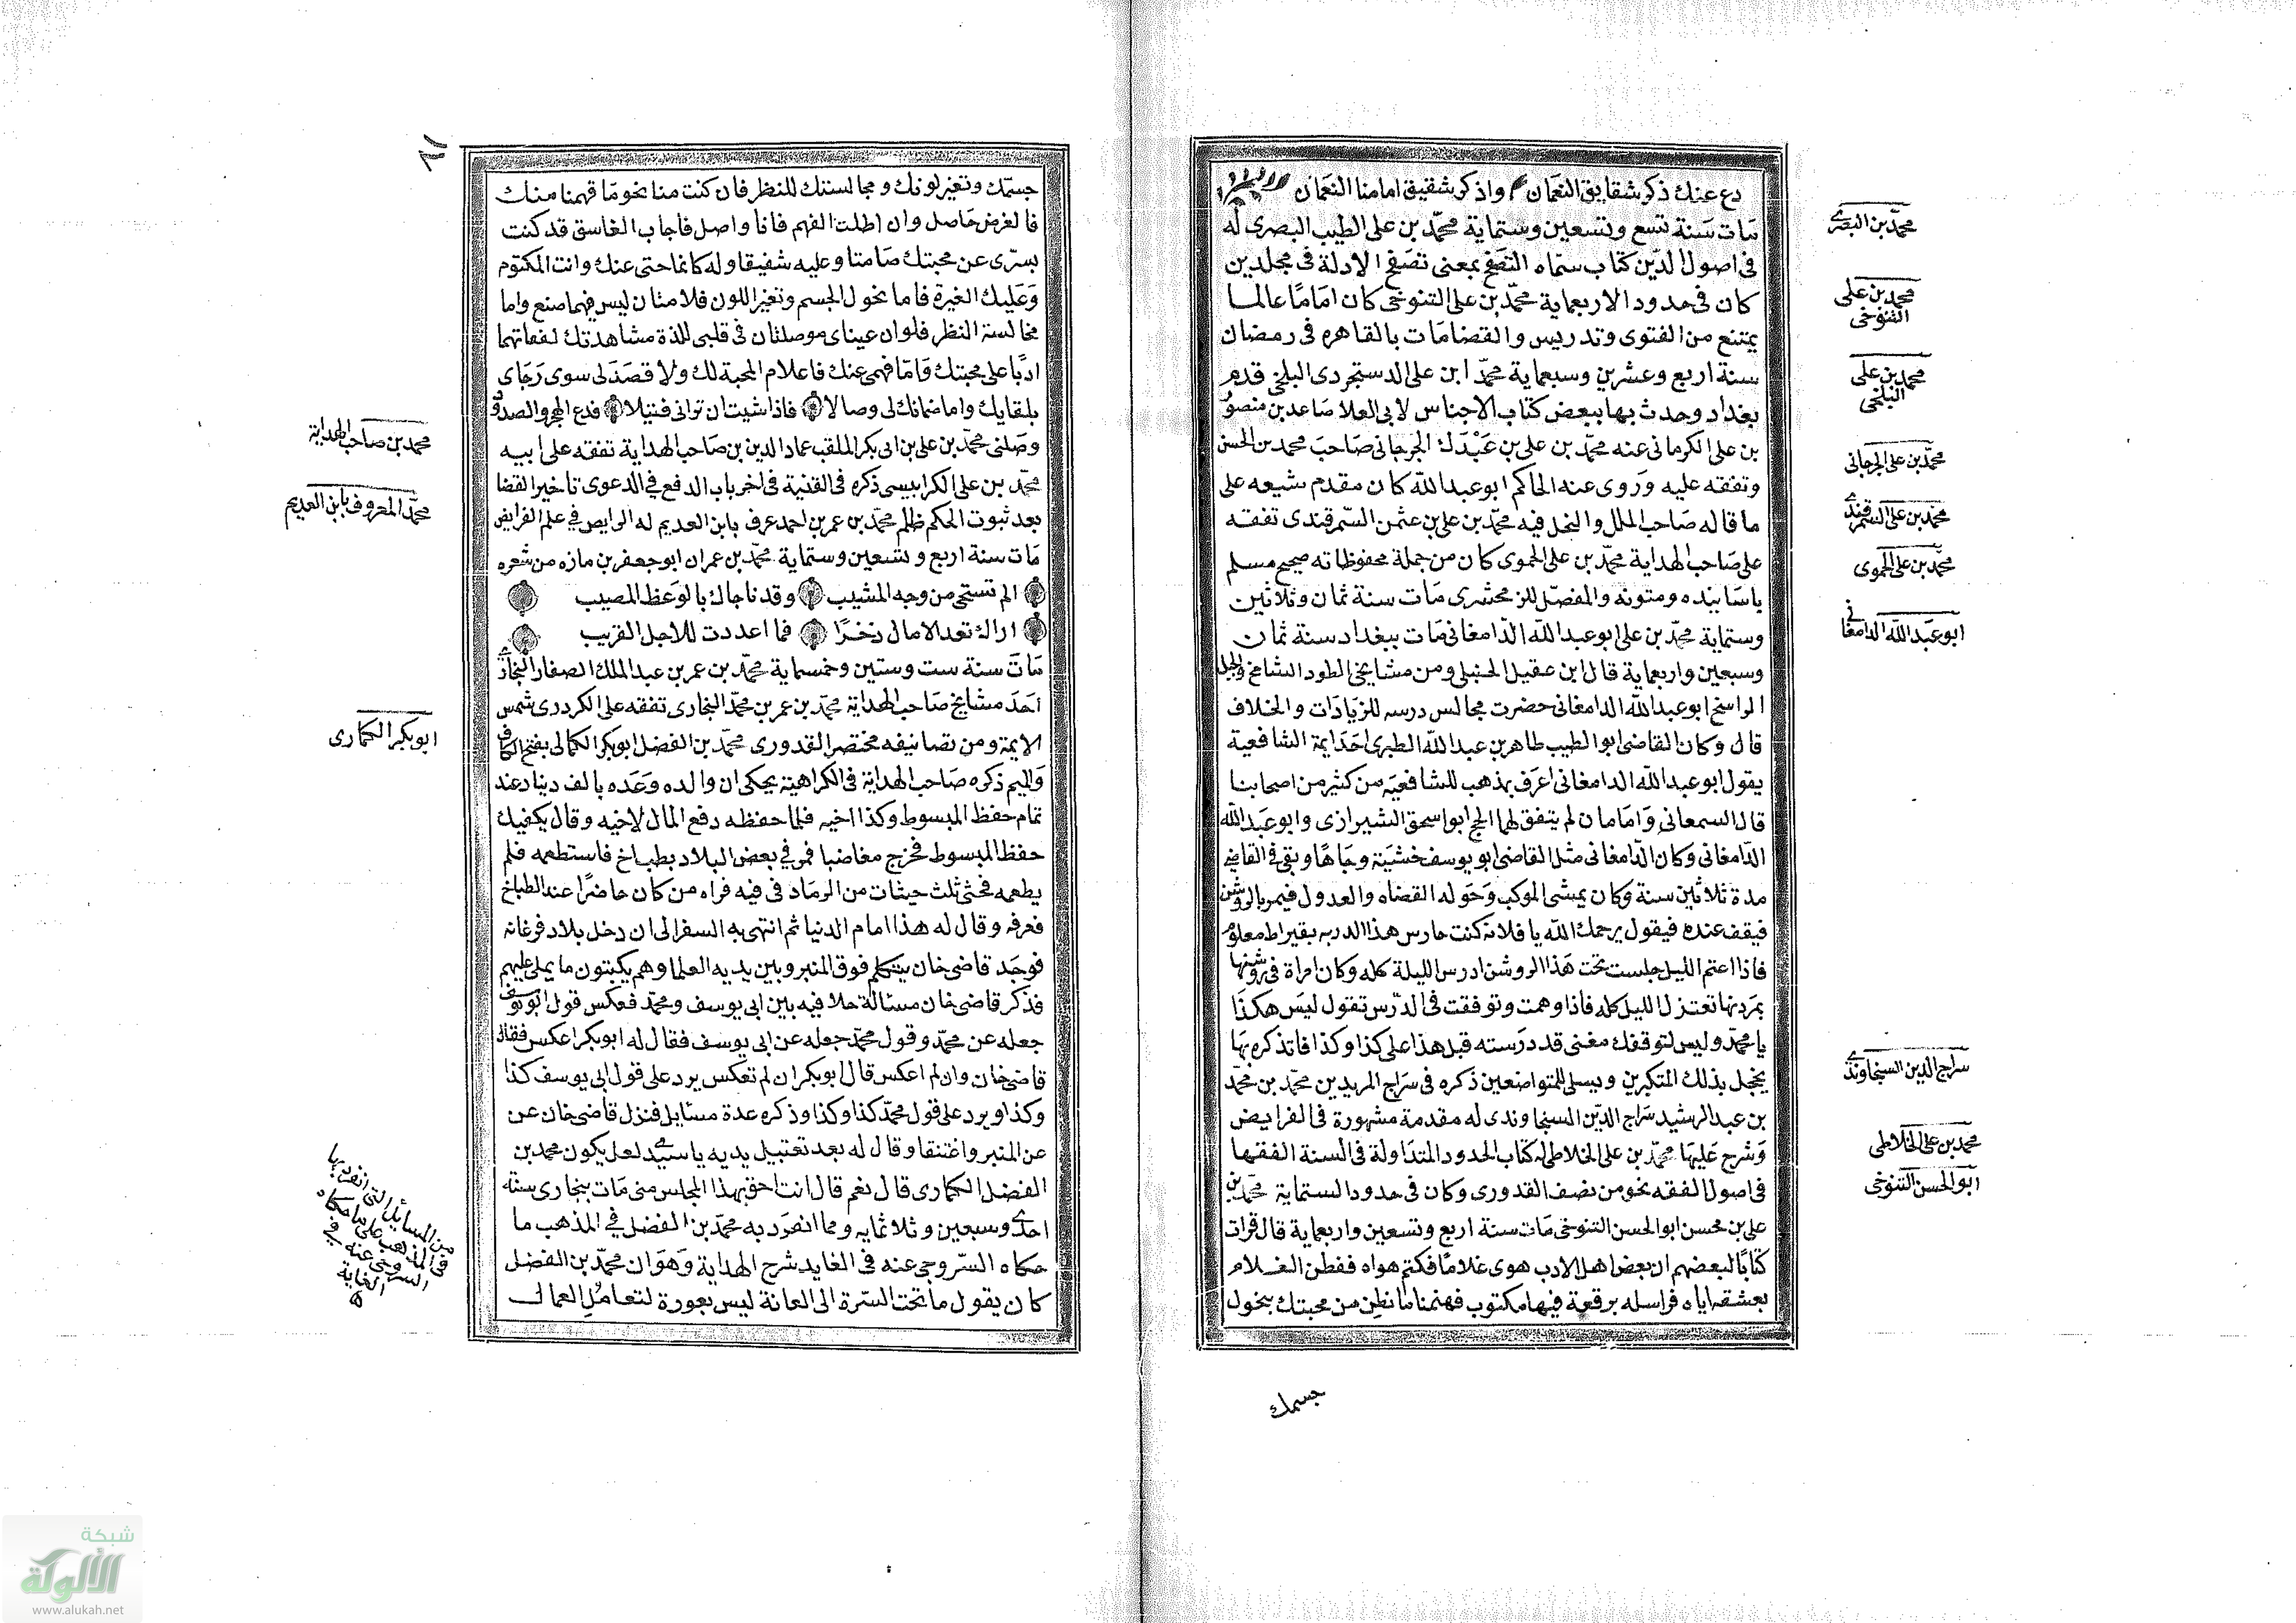 دع عنك ذكر شقايق النعمان واذكر شقيق امامنا النعمان
مات سنة تسع وتسعين وستماية محمد بن على الطيب البصرى له
فى اصول الدين كتاب سماه التصفح بمعنى تصفح الادلة فى مجلدين
كان فى حدود الاربعماية محمد بن على التنوخى كان اماما عالما
يمتنع من الفتوى وتدريس والقضا مات بالقاهره فى رمضان
سنة اربع وعشرين وسبعماية محمد ابن على الدستجردى البلخى قدم
بغداد وحدث بها ببعض كتاب الاجناس لابى العلا صاعد بن منصور
بن على الكرمانى عنه محمد بن على بن عبدك الجرجانى صاحب محمد بن الحسن
وتفقه عليه وروى عنه الحاكم ابو عبد الله كان مقدم شيعه على
ما قاله صاحب الملل والنحل فيه محمد بن على بن عثمن السمرقندى تفقه
على صاحب الهداية محمد بن على الحموى كان من جملة محفوظاته صحيح مسلم
باسانيده ومتونه والمفصل للزمخشرى مات سنة ثمان وثلاثين
وستماية محمد بن على ابو عبد الله الدامغانى مات ببغداد سنة ثمان
وسبعين واربعماية قال ابن عقيل الحنبلى ومن مشايخى الطود الشامخ والجبل
الراسخ ابو عبد الله الدامغانى حضرت مجالس درسه للزيادات والخلاف
قال وكان القاضى ابو الطيب طاهر بن عبد الله الطبرى احد ايمة الشافعية
يقول ابو عبد الله الدامغانى اعرف بمذهب للشافعيه من كثير من اصحابنا
قال السمعانى وامامان لم يتفق لهما الحج ابو اسحق الشيرازى وابو عبد الله
الدامغانى وكان الدامغانى مثل القاضى ابو يوسف خشية وجاها وبقى فى القاضى
مدة ثلاثين سنة وكان يمشى الموكب وحوله القضاه والعدول فيمر بالروشن
فيقف عنده فيقول يرحمك الله يا فلانه كنت حارس هذا الدرب بقيراط معلوم
فاذا اعتم الليل جلست تحت هذا الروشن ادرس الليلة كله وكان امراة فى روشنها
بمردنها تعتزل الليل كله فاذا وهمت وتوقفت فى الدرس تقول ليس هكذا
يا محمد وليس لتوقفك معنى قد درسته قبل هذا على كذا وكذا فاتذكره بها
يخجل بذلك المتكبرين ويسلى للمتواضعين ذكره فى سراج المريدين محمد بن محمد
بن عبد الرشيد سراج الدين السجاوندى له مقدمة مشهورة فى الفرايض
وشرح عليها محمد بن على الخلاطى له كتاب الحدود المتداولة فى السنة الفقها
فى اصول الفقه نحو من نصف القدورى وكان فى حدود الستماية محمد بن
على بن محسن ابو الحسن التنوخى مات سنة اربع وتسعين واربعماية قال قرات
كتابا لبعضهم ان بعض اهل الادب هوى غلاما فكتم هواه ففطن الغلام
بعشقه اياه فراسله برقعة فيها مكتوب فهمنا ما نظن من محبتك بنحول
جسمك
محمد بن البصرى
محمد بن على
التنوخى
محمد بن على
البلخى
محمد بن على الجرجانى
محمد بن على السمرقندى
محمد بن على الحموى
ابو عبد الله الدامغانى
سراج الدين السجاوندى
محمد بن على الخلاطى
ابو الحسن التنوخى
جسمك وتغير لونك ومجالستك للنظر فان كنت منا نحو ما فهمنا منك
فالغرض حاصل وان اطلت الفهم فانا واصل فاجاب الغاسق قد كنت
بسرى عن محبتك صامتا وعليه شفيقا وله كاتما حتى عنك وانت المكتوم
وعليك الغيرة فاما نحول الجسم وتغير اللون فلامثان ليس فيهما صنع واما
مخالسة النظر فلو ان عيناى موصلتان فى قلبى للذة مشاهدتك لفقاتهما
ادبا على محبتك واما فهمى عنك فاعلام المحبة لك ولا قصد لى سوى رجاى
بلقايك واما ضمانك لى وصالا فاذا شيت ان ترانى قتيلا فدع الهجر والصدو
وصلنى محمد بن على بن ابى بكر الملقب عماد الدين بن صاحب الهداية تفقه على ابيه
محمد بن على الكرابيسى ذكره فى القنية فى اخر باب الدفع فى الدعوى تاخير القضا
بعد ثبوت الحكم ظلم محمد بن عمر بن احمد عرف بابن العديم له الرايض فى علم الفرايض
مات سنة اربع وتسعين وستماية محمد بن عمران ابو جعفر بن مازه من شعره
الم تستحى من وجه المشيب وقد ناجاك بالوعظ المصيب
اراك تعد الامال ذخرا فما اعددت للاجل القريب
مات سنة ست وستين وخمسماية محمد بن عمر بن عبد الملك الصفار البخارى
احد مشايخ صاحب الهداية محمد بن عمر بن محمد البخارى تفقه على الكردرى شمس
الايمة ومن تصانيفه مختصر القدورى محمد بن الفضل ابو بكر الكمالى بفتح الكاف
والميم ذكره صاحب الهداية فى الكراهية يحكى ان والده وعده بالف دينار عند
تمام حفظ المبسوط وكذا اخيه فلما حفظه دفع المال لاخيه وقال يكفيك
حفظ المبسوط فخرج مغاضبا فمر فى بعض البلاد بطباخ فاستطعمه فلم
يطعمه فحثى ثلث حيثات من الرماد فى فيه فراه من كان حاضرا عند الطباخ
فعرفه وقال له هذا امام الدنيا ثم انتهى به السفر الى ان دخل بلاد فرغانه
فوجد قاضى خان يتكلم فوق المنبر وبين يديه العلما وهم يكبتون ما يملى عليهم
فذكر قاضى خان مسالة خلافيه بين ابى يوسف ومحمد فعكس قول ابو يوسف
جعله عن محمد وقول محمد جعله عن ابى يوسف فقال له ابو بكر اعكس فقال
قاضى خان وان لم اعكس قال ابو بكر ان لم تعكس يرد على قول ابى يوسف كذا
وكذا ويرد على قول محمد كذا وكذا وذكره عدة مسايل فنزل قاضى خان عن
عن المنبر واعتنقا وقال له بعد تقبيل يديه يا سيدى لعل يكون محمد بن
الفضل الكمارى قال نعم قال انت احق بهذا المجلس منى مات ببخارى سنة
احدى وسبعين وثلاثمايه ومما انفرد به محمد بن الفضل فى المذهب ما
حكاه السروجى عنه فى الغايه شرح الهداية وهو ان محمد بن الفضل
كان يقول ما تحت السرة الى العانة ليس بعورة لتعامل العمال
محمد بن صاحب الهداية
محمد المعروف بابن العديم
ابو بكر الكمارى
من المسايل التى انفرد بها
فى المذهب على ما حكاه
السروجى عنه فى
الغاية
شبكة
الألوكة
www.alukah.net